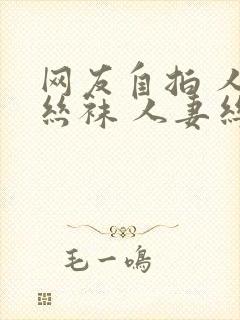 网友自拍 人
丝袜 人妻丝
毛一鸣